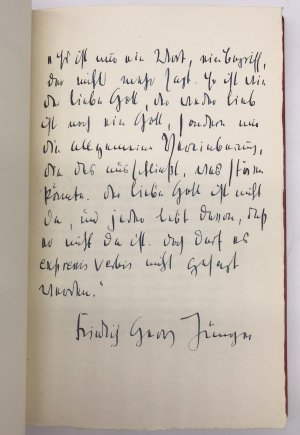 „Es ist nur ein Wort, ein Begriff,
der nicht mehr sagt. Es ist wie
der liebe Gott, der weder lieb
ist noch ein Gott, sondern nur
die allgemeine Vereinbarung,
die das ausschließt, was stören
könnte. Der liebe Gott ist nicht
da, und jeder lebt davon, daß
er nicht da ist. Das darf es
expressis verbis nicht gesagt
werden."
Friedrich Georg Jünger